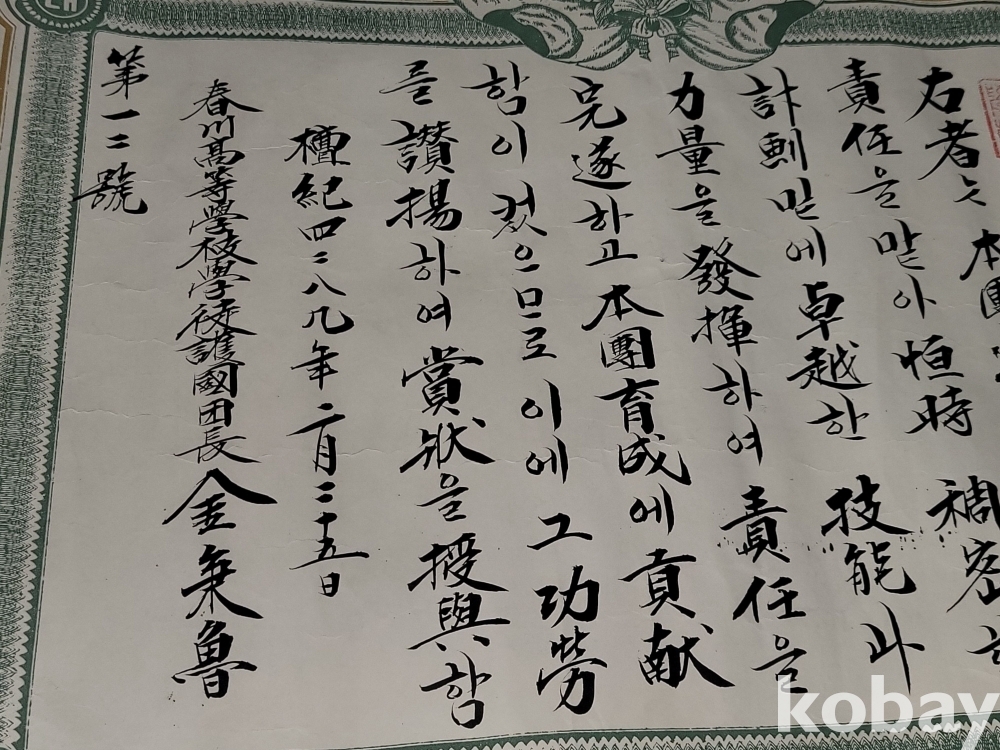 右者는 本團
責任을 맡아 恒時 稠密
計劃 밑에 卓越한 技能과
力量을 發揮하여 責任을
完遂하고 本團育成에 貢献
함이 컷으므로 이에 그 功勞
를 讃揚하여 賞狀을 授與함
檀紀四二八九年二月二十五日
春川高等學校學徒護國团長 金秉魯
第一二號
kobay